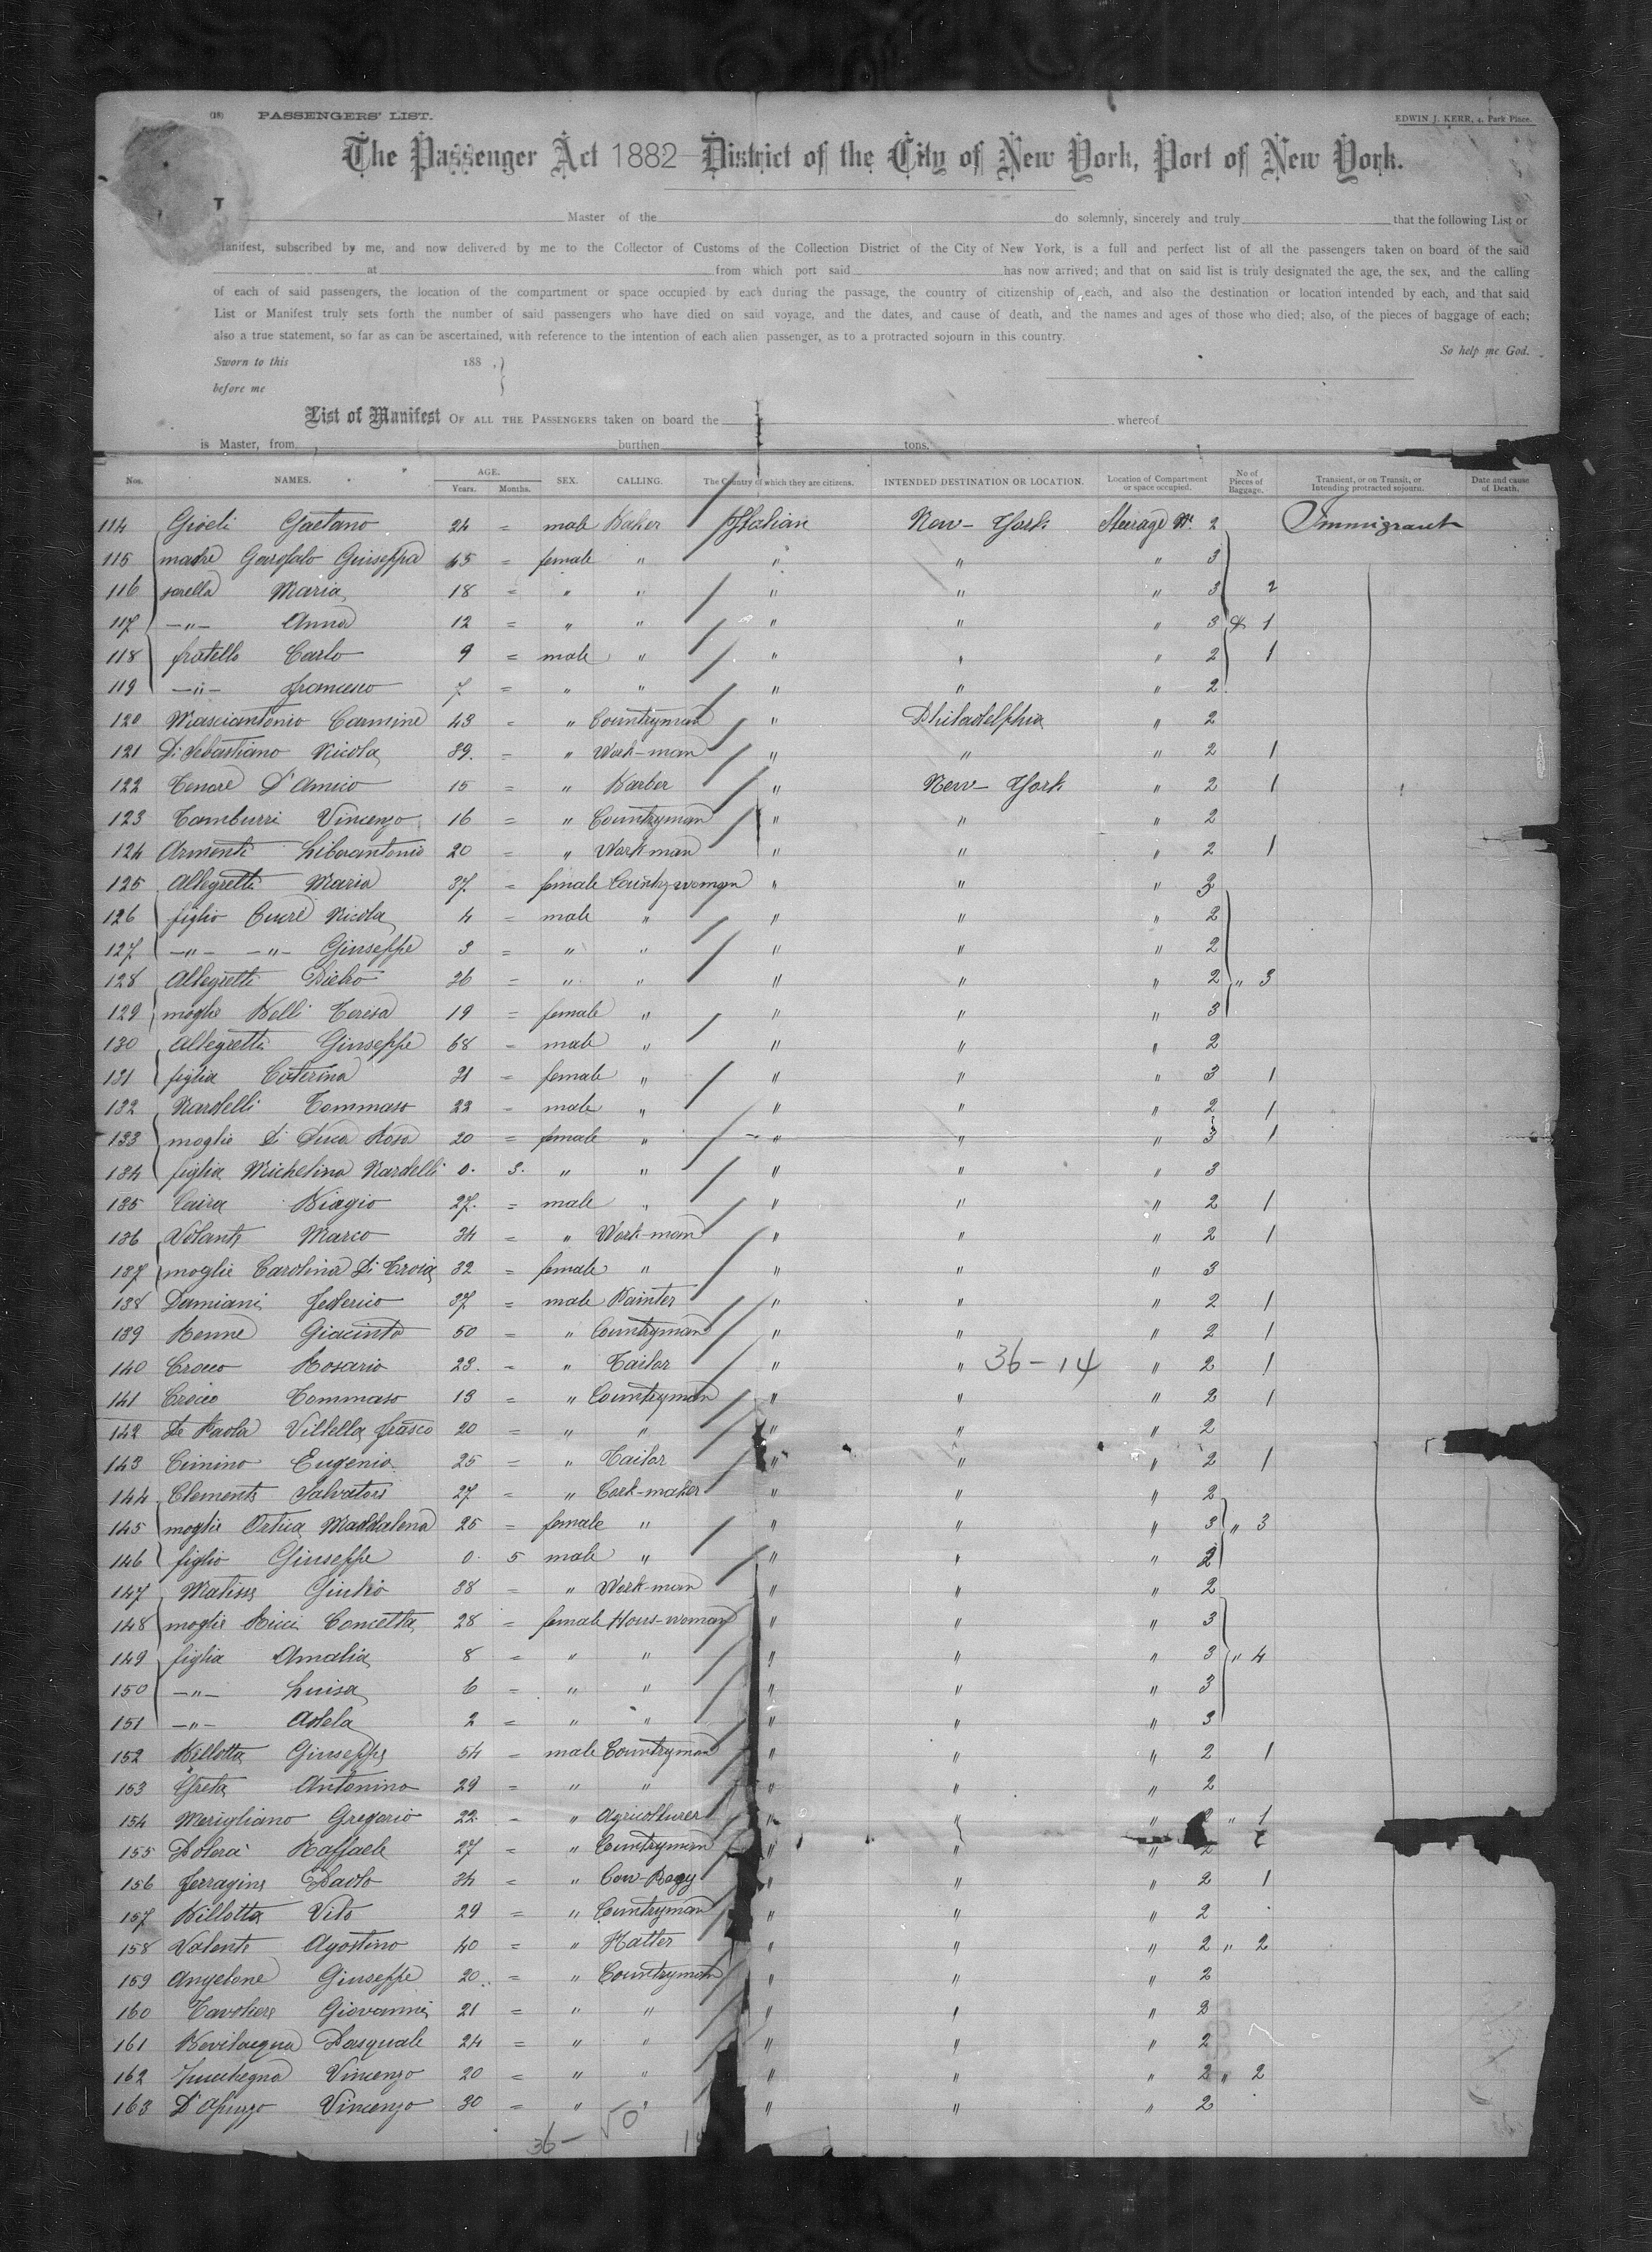 (18) PASSENGERS' LIST. EDWIN J. KERR, 4, Park Place.
The Passenger Act 1882 District of the City of New York, Port of New York.
Master of the do solemnly, sincerely and truly that the following List or
Manifest, subscribed by me, and now delivered by me to the Collector of Customs of the Collection District of the City of New York, is a full and perfect list of all the passengers taken on board of the said
at from which port said has now arrived; and that on said list is truly designated the age, the sex, and the calling
of each of said passengers, the location of the compartment or space occupied by each during the passage, the country of citizenship of each, and also the destination or location intended by each, and that said
List or Manifest truly sets forth the number of said passengers who have died on said voyage, and the dates, and cause of death, and the names and ages of those who died; also, of the pieces of baggage of each;
also a true statement, so far as can be ascertained, with reference to the intention of each alien passenger, as to a protracted sojourn in this country.
So help me God.
Sworn to this 188 .
before me
List of Manifest OF ALL THE PASSENGERS taken on board the whereof
is Master, from burthen tons.
Nos. NAMES. AGE. Years. Months. SEX. CALLING. The Country of which they are citizens. INTENDED DESTINATION OR LOCATION. Location of Compartment or space occupied. No of Pieces of Baggage. Transient, or on Transit, or Intending protracted sojourn. Date and cause of Death.
114 Gioeli Gaetano 24 = male Baker Italian New-York Steerage Nr. 2 Immigrant
115 madre Garofalo Giuseppa 45 = female " " " " 3
116 sorella Maria 18 = " " " " " 3 2
117 -"- Anna 12 = " " " " " 3 & 1
118 fratello Carlo 9 = male " " " " 2 1
119 -"- Francesco 7 = " " " " " 2
120 Masciantonio Carmine 43 = " Countryman " Philadelphia " 2
121 Di Sebastiano Nicola 39. = " Work-man " " " 2 1
122 Tenore D'Amico 15 = " Barber " New-York " 2 1
123 Tamburri Vincenzo 16 = " Countryman " " " 2
124 Armenti Liberantonio 20 = " Workman " " " 2 1
125 Allegretti Maria 37 = female Countrywoman " " " 3
126 figlio Nicola 4 = male " " " " 2
127 -"- -"- Giuseppe 3 = " " " " " 2
128 Allegretti Pietro 26 = " " " " " 2 " 3
129 moglie Belli Teresa 19 = female " " " " 3
130 Allegretti Giuseppe 68 = male " " " " 2
131 figlia Caterina 21 = female " " " " 3 1
132 Nardelli Tommaso 22 = male " " " " 2 1
133 moglie Di Luca Rosa 20 = female " " " " 3 1
134 figlia Michelina Nardelli 0. 3. " " " " " 3
135 Caira Biagio 27. = male " " " " 2 1
136 Volante Marco 34 = " Work-man " " " 2 1
137 moglie Carolina Di Troia 32 = female " " " " 3
138 Damiani Federico 37 = male Painter " " " 2 1
139 Benne Giacinto 50 = " Countryman " " " 2 1
140 Crocco Rosario 23. = " Tailor " " 36-14 " 2 1
141 Crocco Tommaso 13 = " Countryman " " " 2 1
142 De Paola Villella 20 = " " " " " 2
143 Cimino Eugenio 25 = " Tailor " " " 2 1
144 Clemente Salvatore 27 = " Cork-maker " " " 2
145 moglie Maddalena 25 = female " " " " 3 " 3
146 figlio Giuseppe 0. 5 male " " " " 2
147 Giulio 38 = " Work-man " " " 2
148 moglie Ricci Concetta 28 = female Hous-woman " " " 3
149 figlia Amalia 8 = " " " " " 3 " 4
150 -"- Luisa 6 = " " " " " 3
151 -"- Adela 2 = " " " " " 3
152 Billotta Giuseppe 54 = male Countryman " " " 2 1
153 Greta Antonino 29 = " " " " " 2
154 Merigliano Gregorio 22 = " Agricolturer " " " 2 " 1
155 Dolera Raffaele 27 = " Countryman " " " 2
156 Ferragine Paolo 34 = " " " " 2 1
157 Billotta Vito 29 = " Countryman " " " 2
158 Valente Agostino 40 = " Hatter " " " 2 " 2
159 Angelone Giuseppe 20. = " Countryman " " " 2
160 Tavoliere Giovanni 21 = " " " " " 2
161 Bevilacqua Pasquale 24 = " " " " " 2
162 Vincenzo 20 = " " " " " 2 " 2
163 Vincenzo 30 = " " " " " 2
36- 50